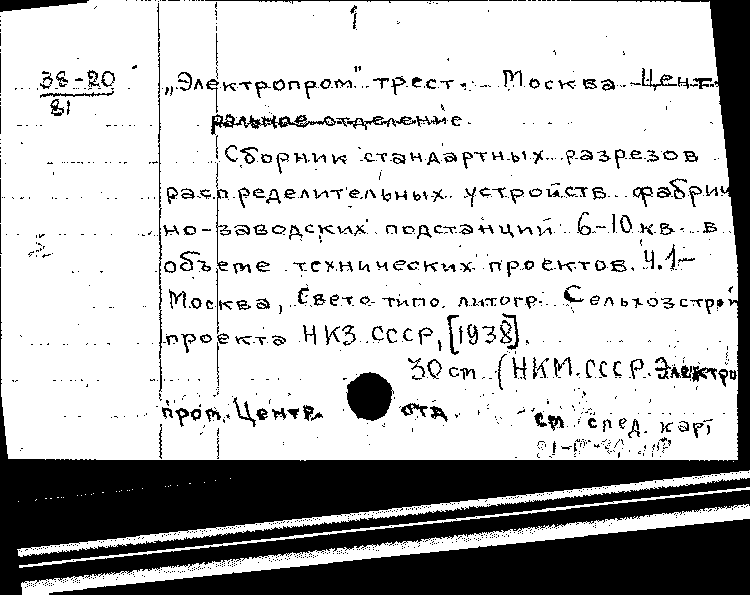 1
38-20
81
„Электропром" трест. Москва Цент-
ральное отделение.
Сборник стандартных разрезов
распределительных устройств фабрич
но-заводских подстанций 6-10 кв. в
объеме технических проектов. Ч.1-
Москва, Свето-типо. литогр. Сельхозстрой
проекта НКЗ СССР, [1938].
30 cm (НКМ.СССР. Электро
пром. Центр. отд.
см след. карт